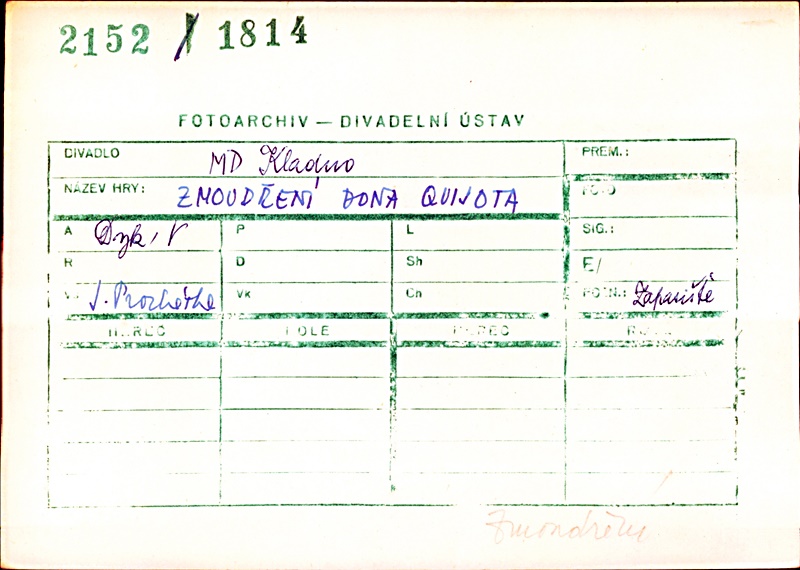 2152 / 1814
FOTOARCHIV — DIVADELNÍ ÚSTAV
DIVADLO MD Kladno PREM.:
NÁZEV HRY: ZMOUDŘENÍ DONA QUIJOTA FOTO
A Dyk, V P L SIG.:
R D Sh E/
V J. Procházka Vk Cn POZN.: Zápůjčiště
HEREC ROLE HEREC ROLE
Zmoudření